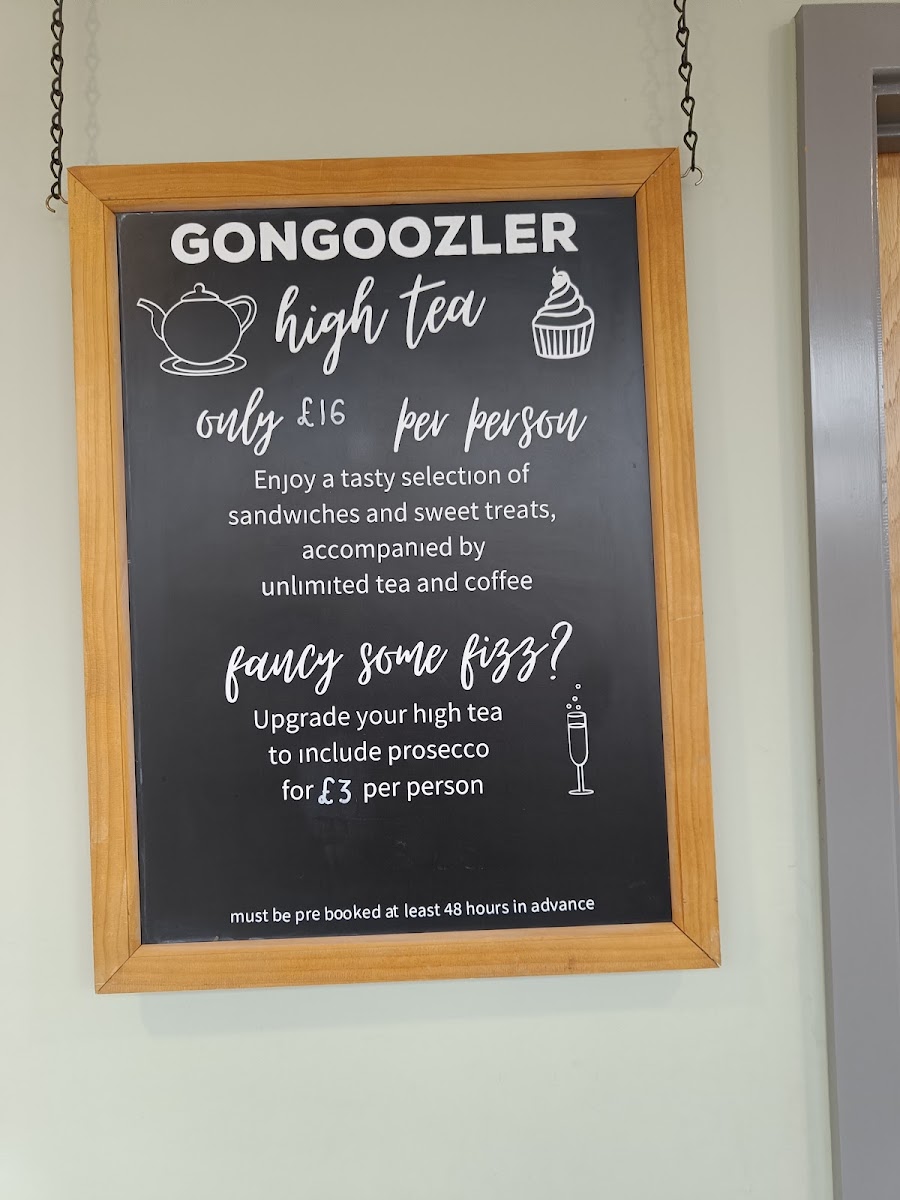 GONGOOZLER
high tea
only £16 per person
Enjoy a tasty selection of
sandwiches and sweet treats,
accompanied by
unlimited tea and coffee
fancy some fizz?
Upgrade your high tea
to include prosecco
for £3 per person
must be pre booked at least 48 hours in advance